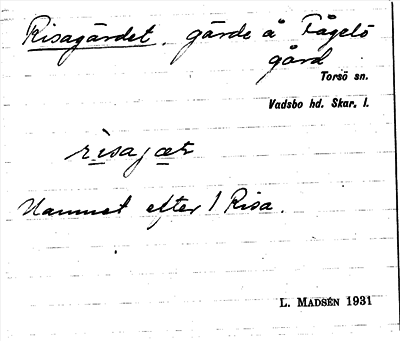 Risagärdet, gärde å Fågelö
gård
Torsö sn.
Vadsbo hd. Skar. l.
risajæt
Namnet efter 1 Risa.
L. MADSÉN 1931